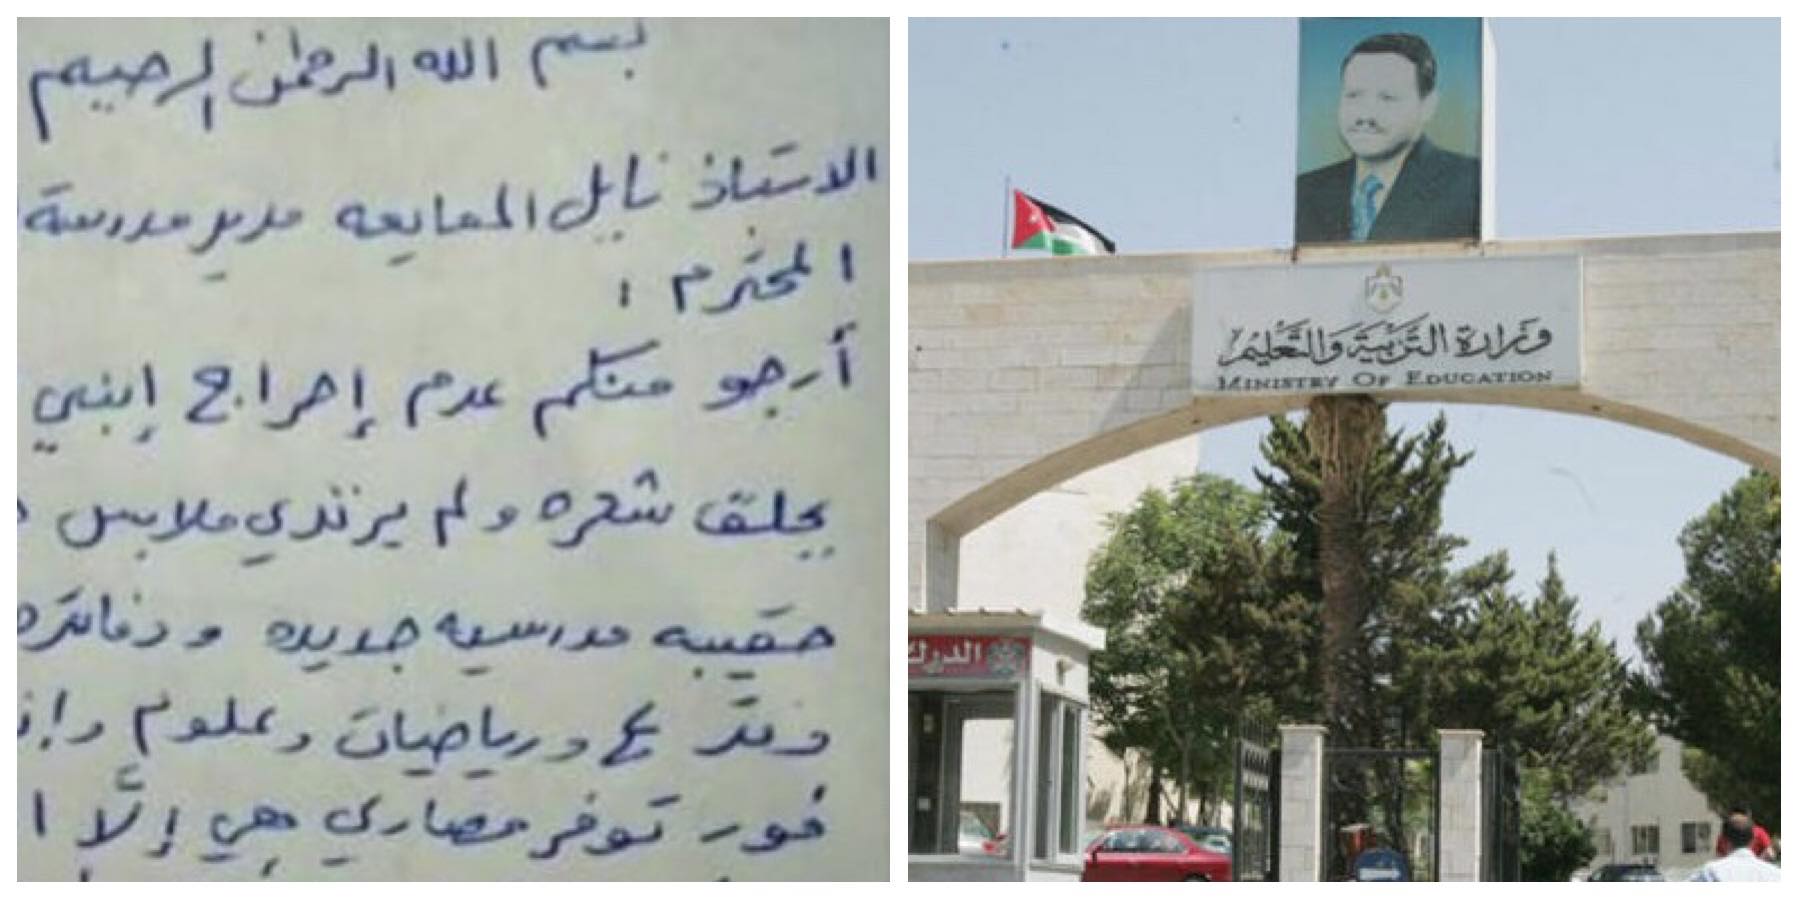 بسم الله الرحمن الرحيم
الاستاذ نايل المعايعه مدير مدرسة
المحترم :
أرجو منكم عدم إحراج إبني
يحلق شعره ولم يرتدي ملابس
حقيبه مدرسيه جديده ودفاتره
ورياضيات وعلوم
فور توفر مصاري معي إلّا
وزارة التربية والتعليم
MINISTRY OF EDUCATION
الدرك